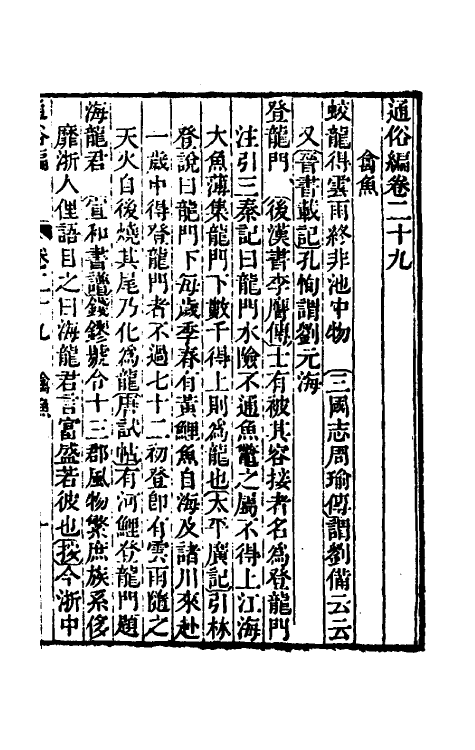 通俗編卷二十九
禽魚
蛟龍得雲雨終非池中物　三國志周瑜傳謂劉備云云
又晉書載記孔恂謂劉元海
登龍門　後漢書李膺傳士有被其容接者名爲登龍門
注引三秦記曰龍門水險不通魚鼈之屬不得上江海
大魚薄集龍門下數千得上則爲龍也太平廣記引林
登說曰龍門下每歲季春有黃鯉魚自海及諸川來赴
一歲中得登龍門者不過七十二初登卽有雲雨隨之
天火自後燒其尾乃化爲龍唐試帖有河鯉登龍門題
海龍君　宣和書譜錢鏐號令十三郡風物繁庶族系侈
靡浙人俚語目之曰海龍君言富盛若彼也按今浙中
通俗編　卷二十九　禽魚　一